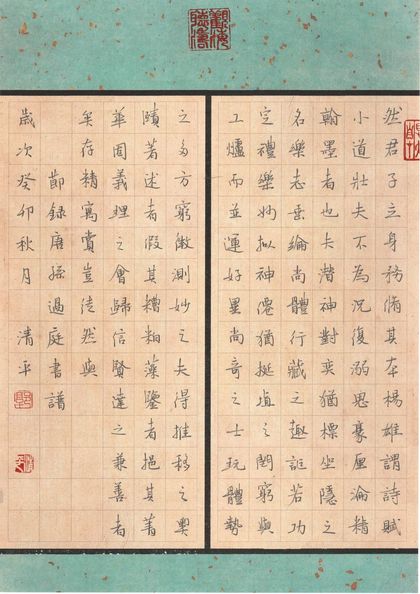 觀海聽濤
然君子立身務脩其本楊雄謂詩賦
小道壯夫不為況復溺思豪厘淪精
翰墨者也夫潛神對奕猶標坐隱之
名樂志垂綸尚體行藏之趣詎若功
定禮樂妙擬神僊猶挺埴之罔窮與
工爐而並運好異尚奇之士玩體勢
之多方窮微測妙之夫得推移之奧
賾著述者假其糟粕藻鑒者挹其菁
華固義理之會歸信賢達之兼善者
矣存精寓賞豈徒然與
節錄唐孫過庭書譜
歲次癸卯秋月清平